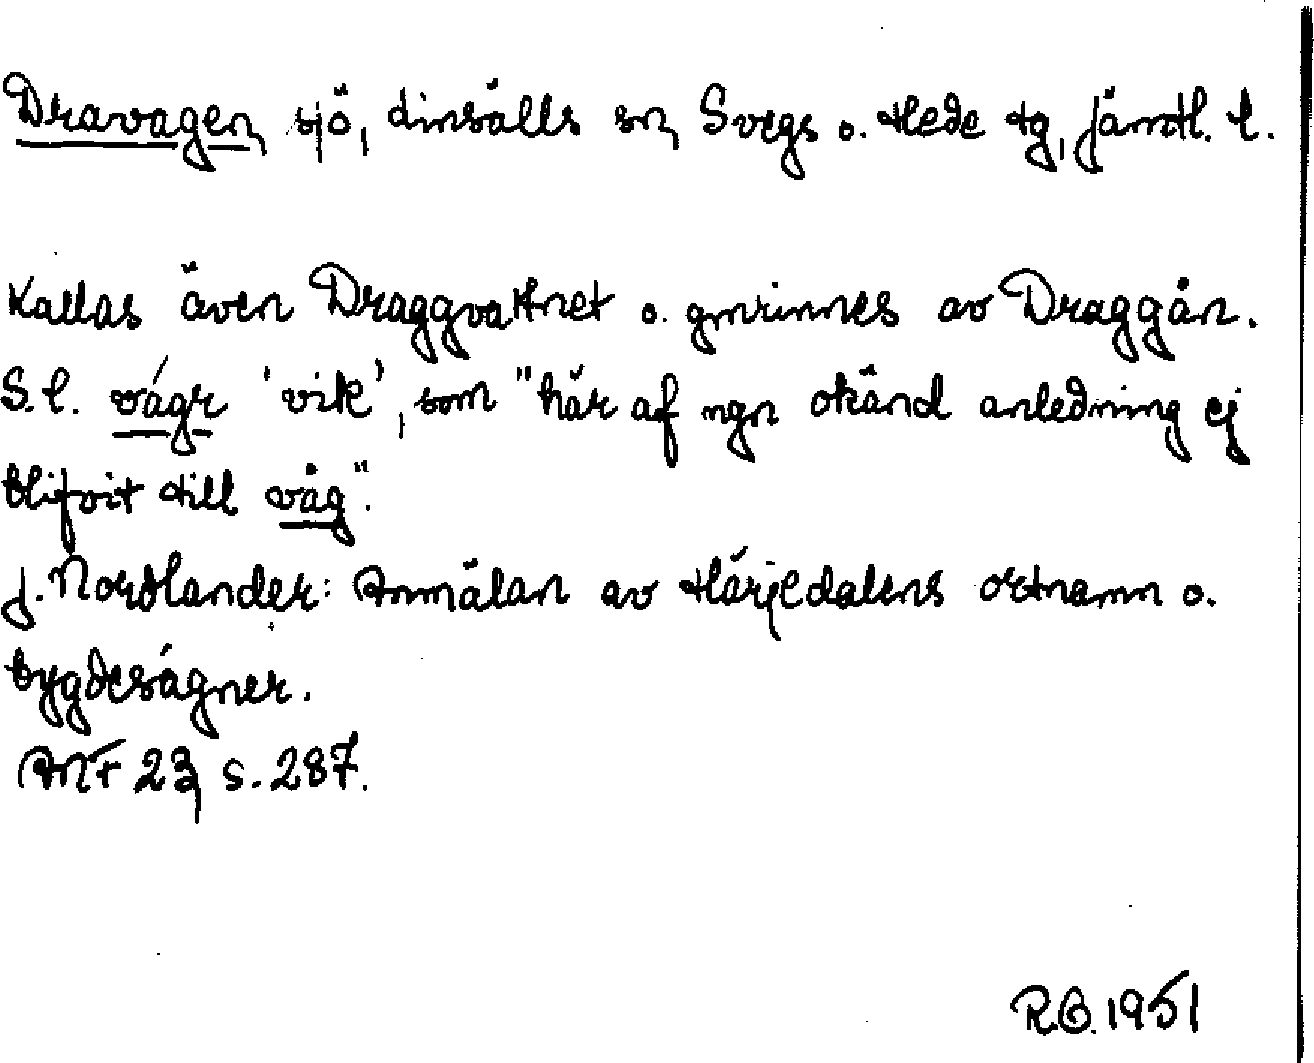 Dravagen, sjö, Linsälls sn, Svegs o. Hede tg, Jämtl. l.
Kallas även Draggvattnet o. gmrinnes av Draggån.
S.l. vágr 'vik', som "här af ngn okänd anledning ej
blifvit till våg".
J. Nordlander: Anmälan av Härjedalens ortnamn o.
bygdesägner.
ANF 23, s. 287.
R.G. 1951